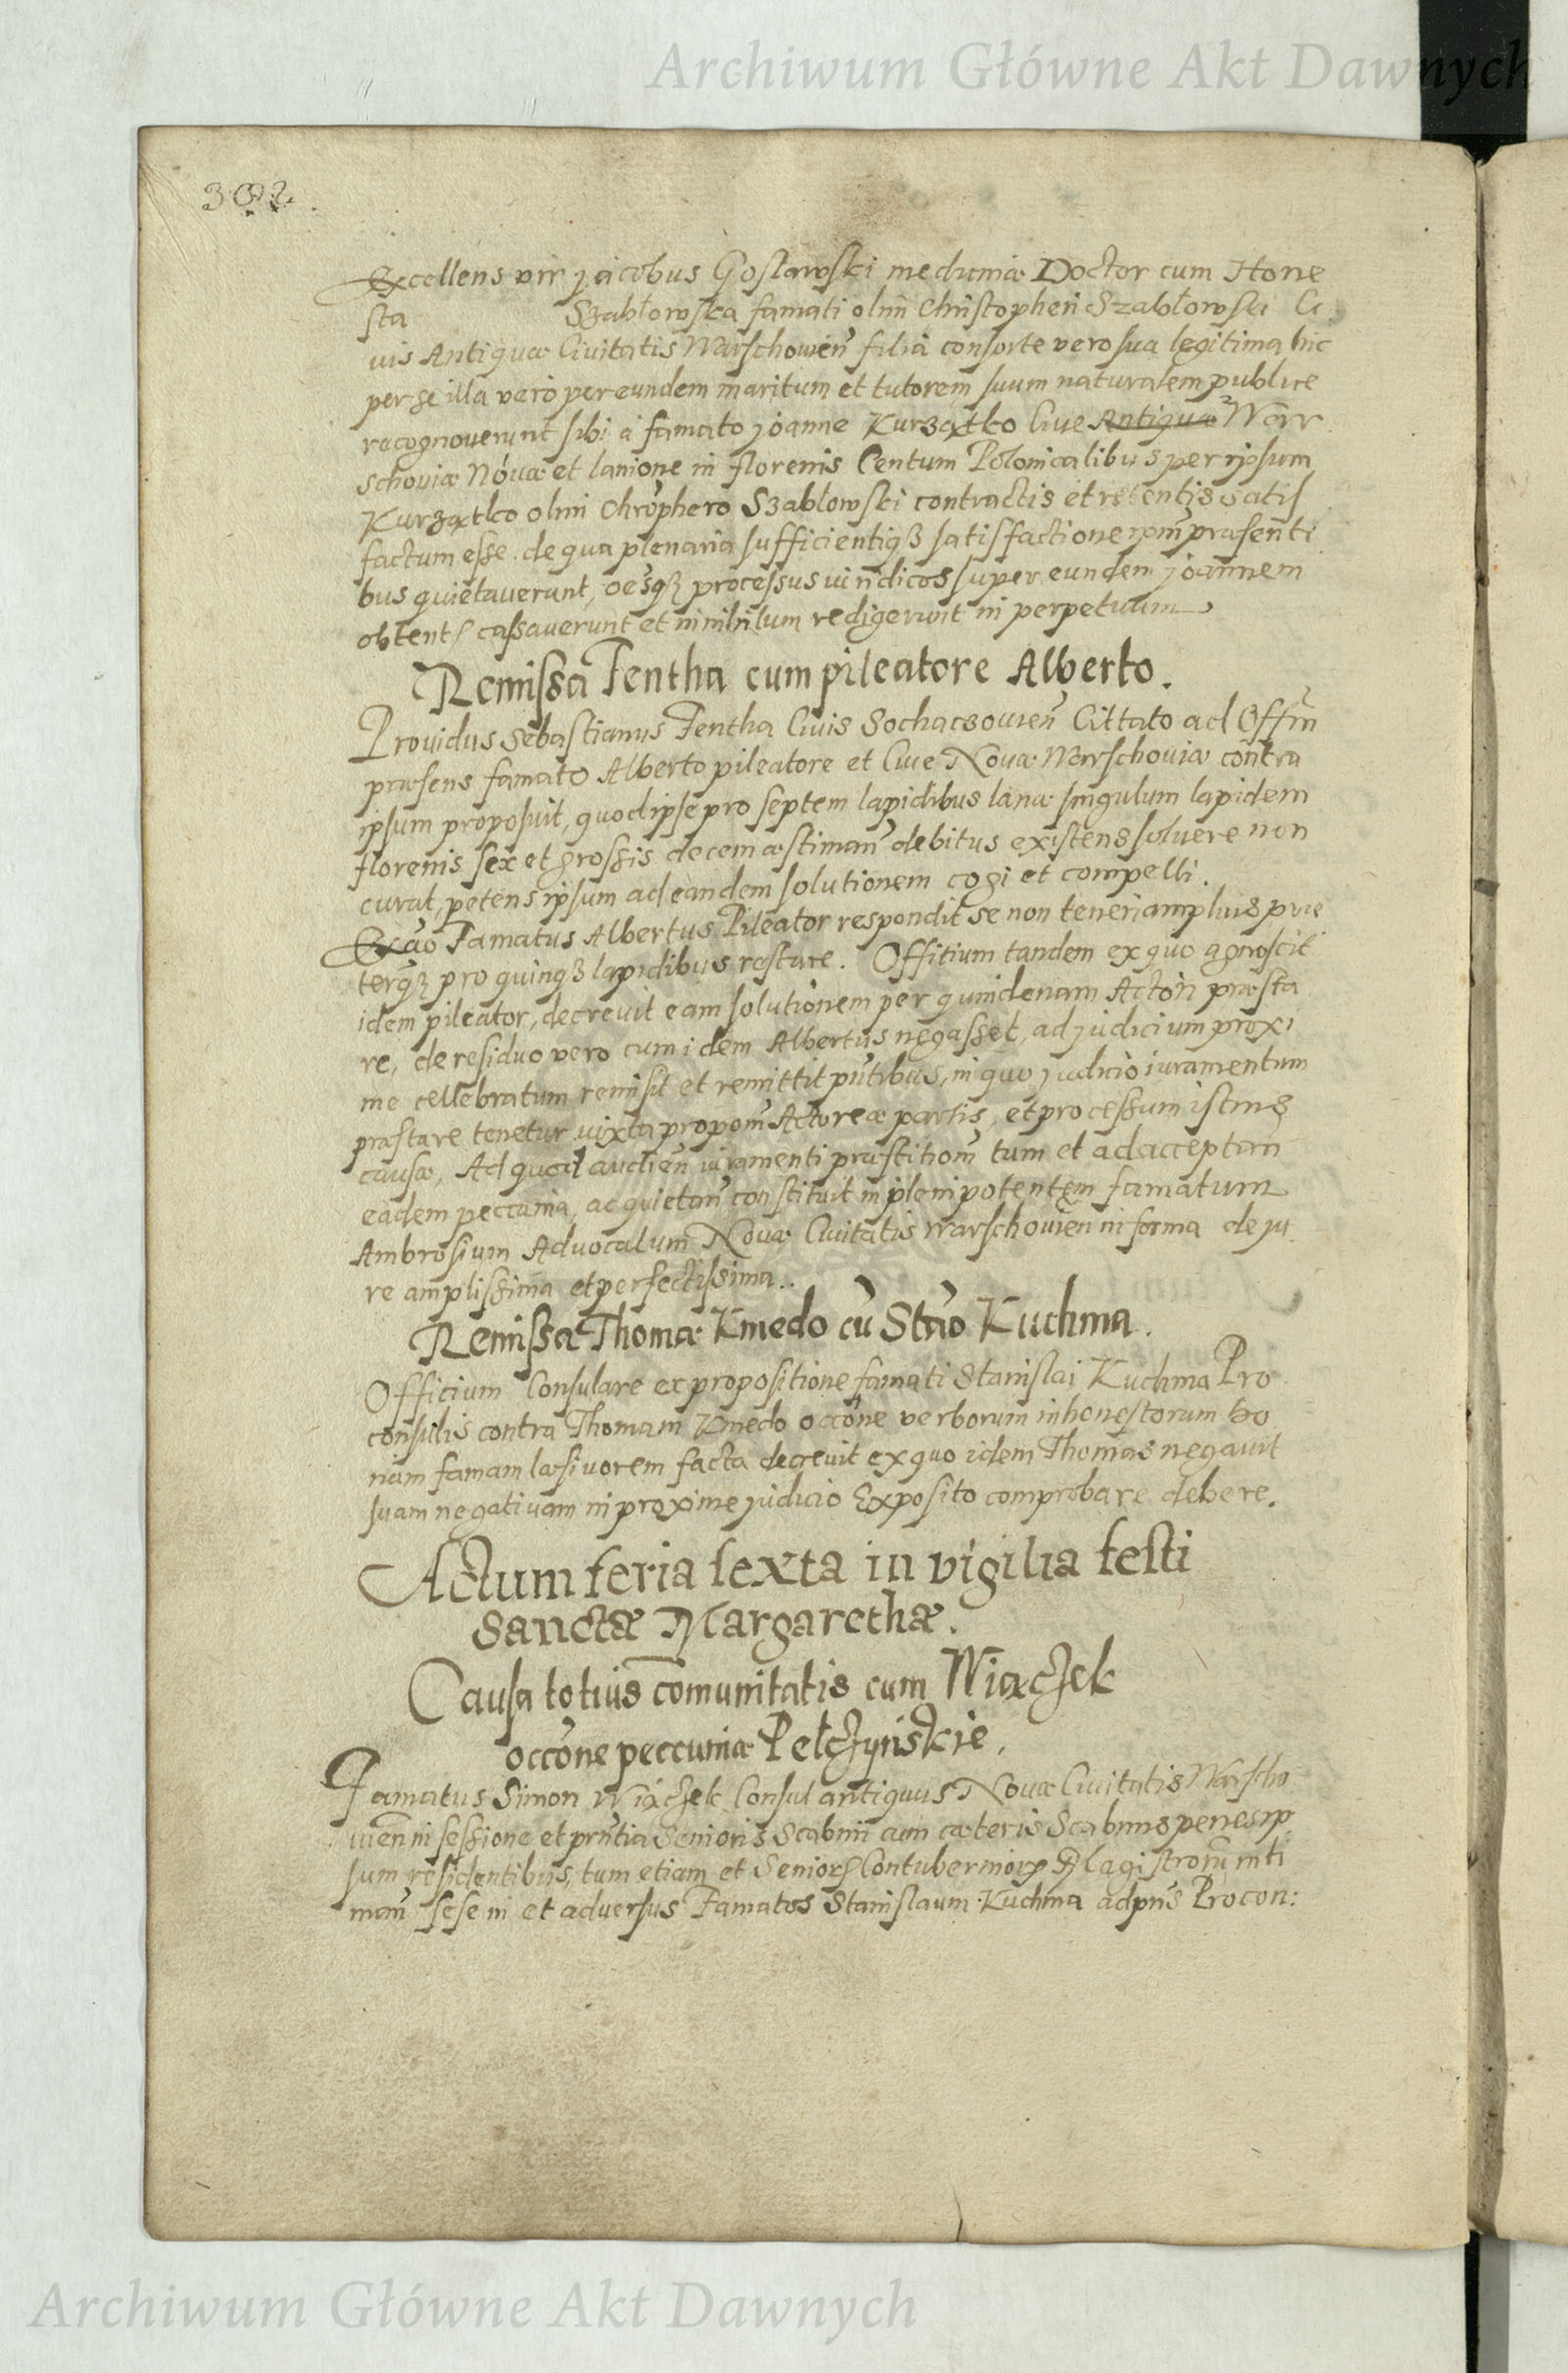 Archiwum Główne Akt Dawnych
302.
Excellens vir Jacobus Goslawski medicinæ Doctor cum Hone
sta Szabłowska famati olim Christopheri Szabłowski Ci
vis Antiquæ Civitatis Warschovien̄ filia consorte vero sua legitima hic
per se illa vero per eundem maritum et tutorem suum naturalem publice
recognoverunt sibi a famato Joanne Kurzątko Cive Antiquæ Warr
schoviæ Novæ et lanione in florenis Centum Polonicalibus per ipsum
Kurzątko olim Chrophero Szabłowski contractis et retentis satis
factum esse. de qua plenaria sufficientiqz satisfactione ipm̄ præsenti
bus quietaverunt, oesqz processus iuridicos super eundem Joannem
obtent. cassaverunt et in nihilum redigerunt in perpetuum
Remissa Fentha cum pileatore Alberto.
Providus Sebastianus Fentha Civis Sochaczovien̄ Cittato ad Offm̄
præsens famato Alberto pileatore et Cive Novæ Warschoviæ contra
ipsum proposuit, quod ipse pro septem lapidibus lanæ singulum lapidem
florenis sex et grossis decem æstiman̄ debitus existens solvere non
curat, petens ipsum ad eandem solutionem cogi et compelli.
Ex ao Famatus Albertus Pileator respondit se non teneri amplius præ
terqz pro quinqz lapidibus restare. Officium tandem ex quo agnoscit
idem pileator, decrevit eam solutionem per quindenam Actori præsta
re, de residuo vero cum idem Albertus negasset, ad judicium proxi
me cellebratum remisit et remittit pn̄tibus, in quo judicio iuramentum
præstare tenetur iuxta propom̄ Actoreæ partis, et processum istius
causæ, Ad quod audien̄ iuramenti præstitiom̄ tum et ad acceptan
eadem peccunia, ac quietan̄ constituit in plenipotentem famatum
Ambrosium Advocatum Novæ Civitatis Warschovien̄ in forma de iu
re amplissima et perfectissima..
Remissa Thomæ Kmedo cū Stao Kuchma.
Officium Consulare ex propositione famati Stanislai Kuchma Pro
consulis contra Thomam Kmedo occōne verborum inhonestorum bo
nam famam læsivorem facta decrevit ex quo idem Thomas negavit
suam negativam in proxime judicio Exposito comprobare debere.
Actum feria sexta in vigilia festi
Sanctæ Margarethæ.
Causa totius comunitatis cum Wiączek
occōne peccuniæ Pełczynskie.
Famatus Simon Wiączek Consul antiquus Novæ Civitatis Warscho
vien̄ in sessione et prn̄tia Senioris Scabini cum cæteris Scabinis penes ip
sum residentibus, tum etiam et Senior. Contubernior. Magistrorum inti
man̄ sese in et adversus Famatos Stanislaum Kuchma ad pn̄s Procon:
Archiwum Główne Akt Dawnych